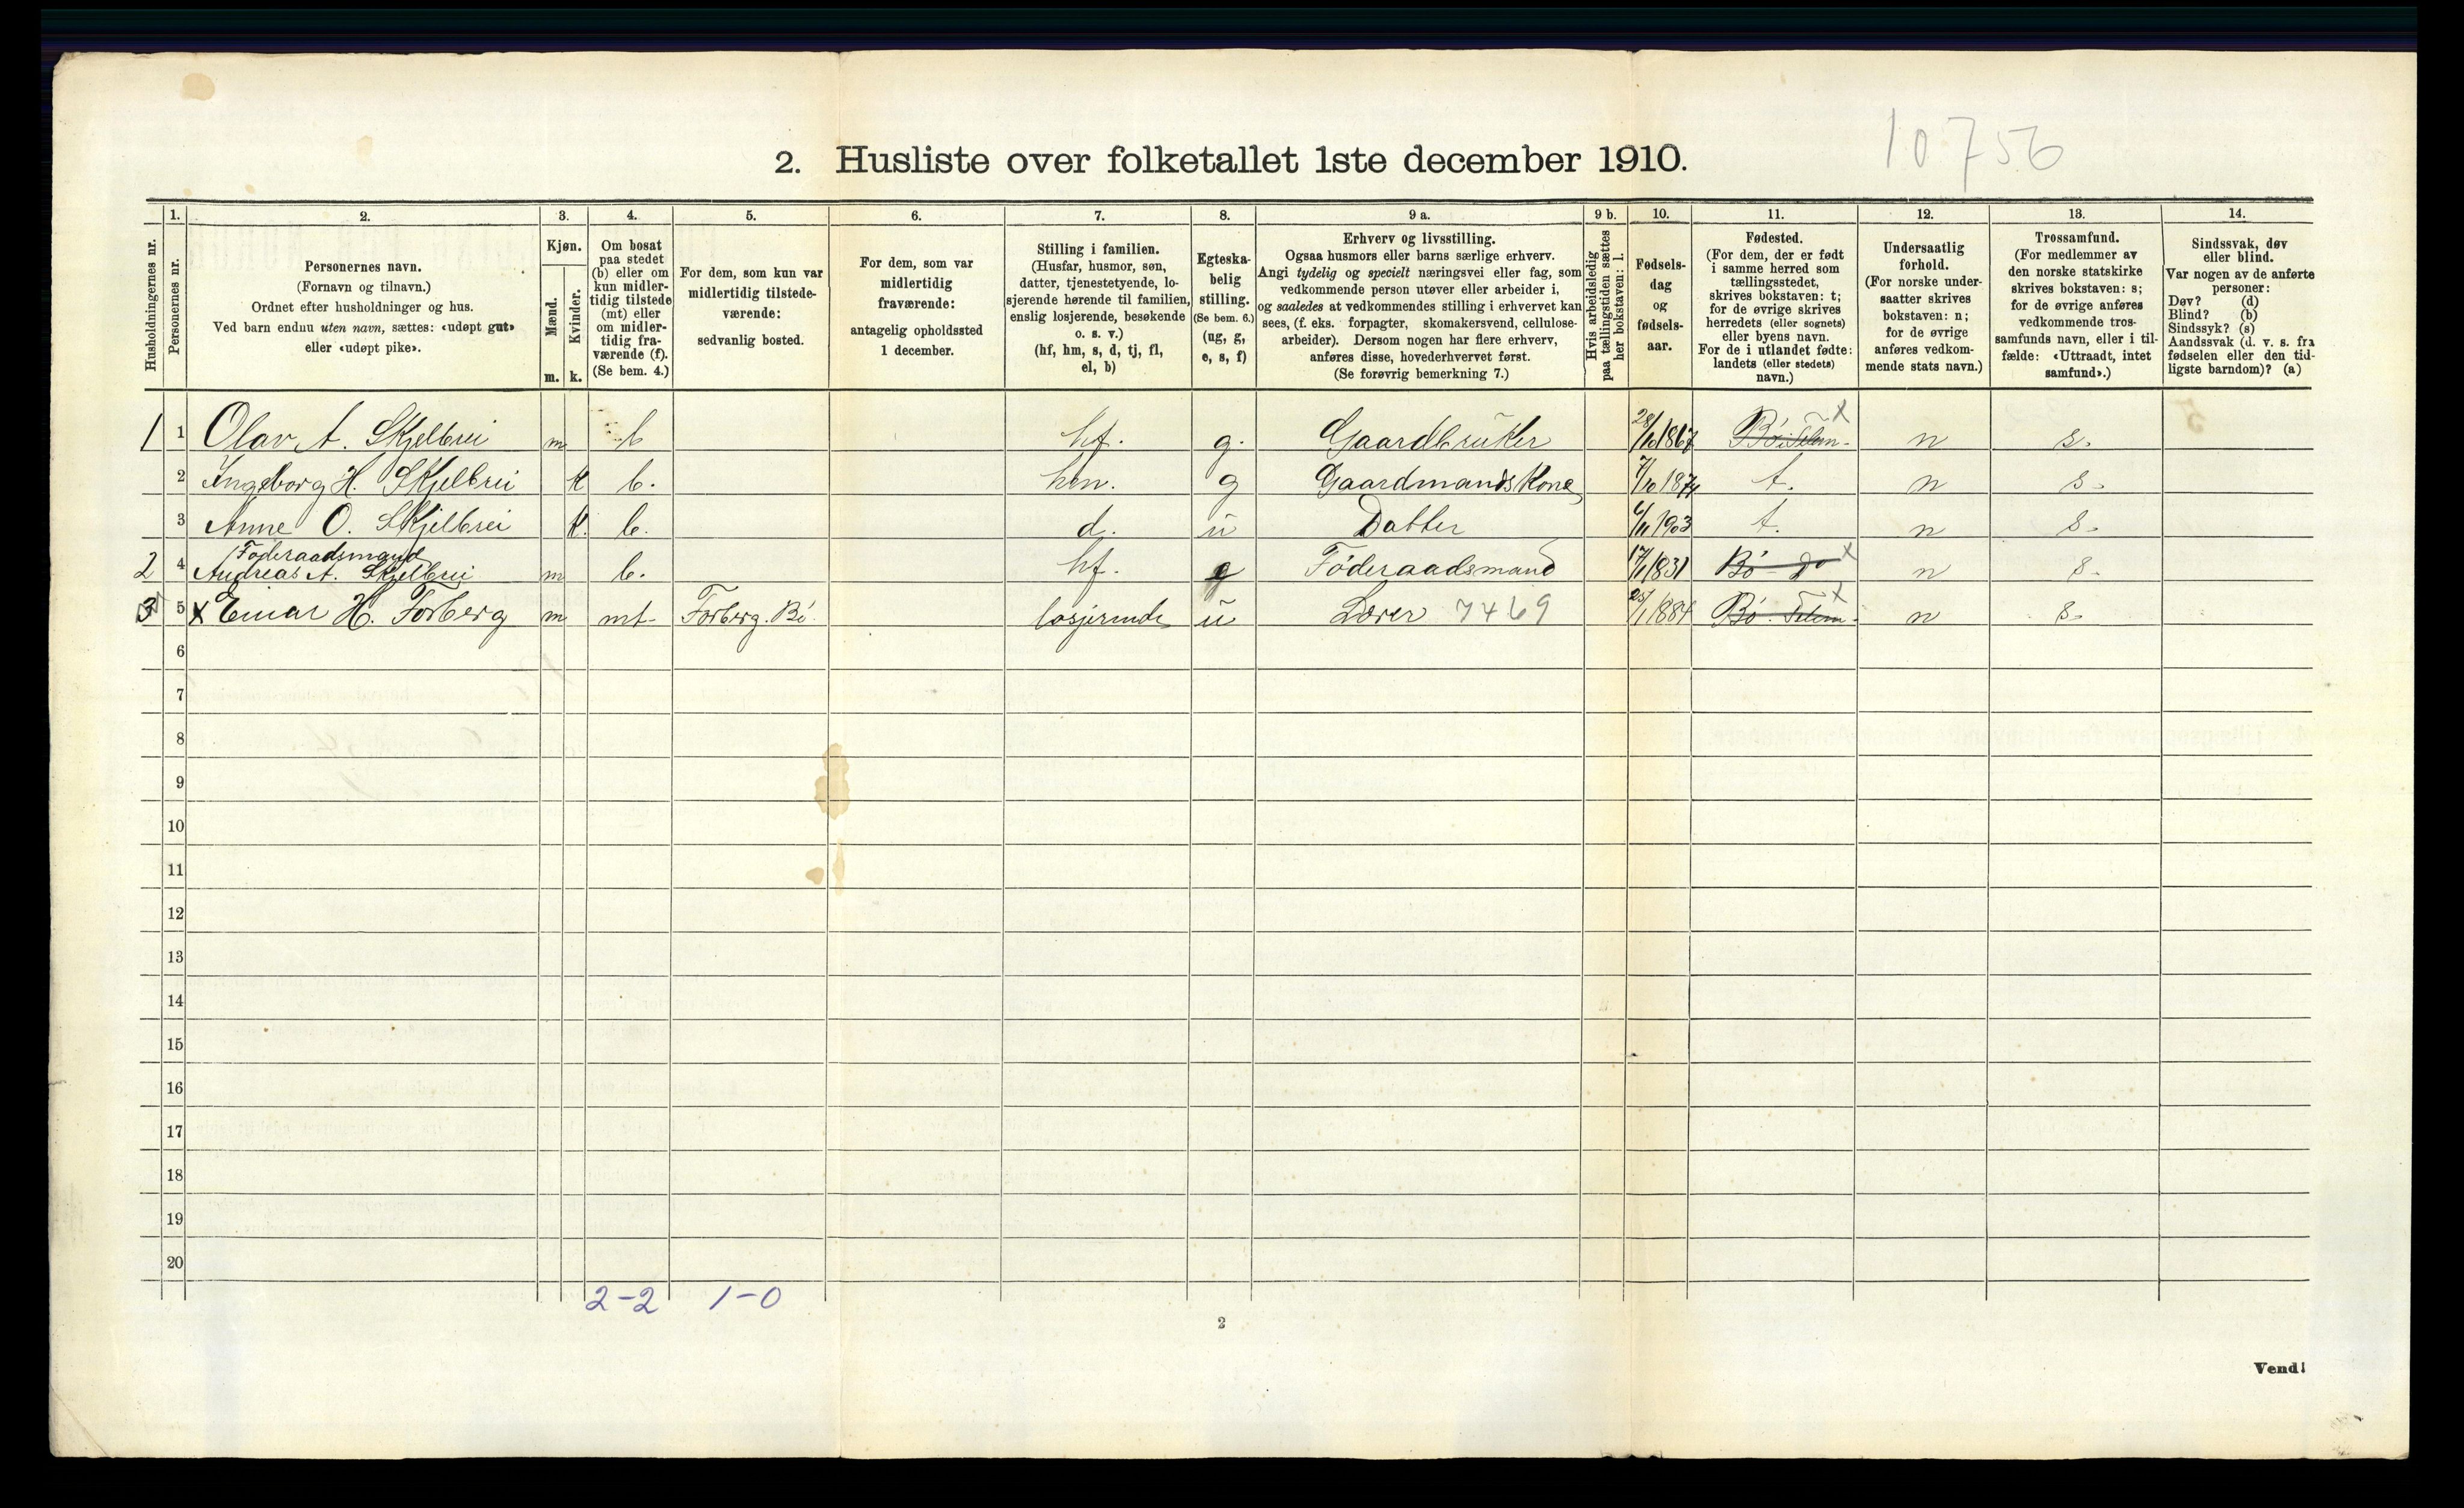 10756
2. Husliste over folketallet 1ste december 1910.
1. 2. 3. 4. 5. 6. 7. 8. 9 a. 9 b. 10. 11. 12. 13. 14.
Husholdningernes nr.
Personernes nr.
Personernes navn.
(Fornavn og tilnavn.)
Ordnet efter husholdninger og hus.
Ved barn endnu uten navn, sættes: «udøpt gut»
eller «udøpt pike».
Kjøn.
Mænd.
Kvinder.
m. k.
Om bosat
paa stedet
(b) eller om
kun midler-
tidig tilstede
(mt) eller
om midler-
tidig fra-
værende (f).
(Se bem. 4.)
For dem, som kun var
midlertidig tilstede-
værende:
sedvanlig bosted.
For dem, som var
midlertidig
fraværende:
antagelig opholdssted
1 december.
Stilling i familien.
(Husfar, husmor, søn,
datter, tjenestetyende, lo-
sjerende hørende til familien,
enslig losjerende, besøkende
o. s. v.)
(hf, hm, s, d, tj, fl,
el, b)
Egteska-
belig
stilling.
(Se bem. 6.)
(ug, g,
e, s, f)
Erhverv og livsstilling.
Ogsaa husmors eller barns særlige erhverv.
Angi tydelig og specielt næringsvei eller fag, som
vedkommende person utøver eller arbeider i,
og saaledes at vedkommendes stilling i erhvervet kan
sees, (f. eks. forpagter, skomakersvend, cellulose-
arbeider). Dersom nogen har flere erhverv,
anføres disse, hovederhvervet først.
(Se forøvrig bemerkning 7.)
Hvis arbeidsledig
paa tællingstiden sættes
her bokstaven: l.
Fødsels-
dag
og
fødsels-
aar.
Fødested.
(For dem, der er født
i samme herred som
tællingsstedet,
skrives bokstaven: t;
for de øvrige skrives
herredets (eller sognets)
eller byens navn.
For de i utlandet fødte:
landets (eller stedets)
navn.)
Undersaatlig
forhold.
(For norske under-
saatter skrives
bokstaven: n;
for de øvrige
anføres vedkom-
mende stats navn.)
Trossamfund.
(For medlemmer av
den norske statskirke
skrives bokstaven: s;
for de øvrige anføres
vedkommende tros-
samfunds navn, eller i til-
fælde: «Uttraadt, intet
samfund».)
Sindssvak, døv
eller blind.
Var nogen av de anførte
personer:
Døv? (d)
Blind? (b)
Sindssyk? (s)
Aandssvak (d. v. s. fra
fødselen eller den tid-
ligste barndom)? (a)
1 1 Olav A. Skjelbrei m b hf. g. Gaardbruker 28/10 1867 Bø. Telem. x n s.
2 Ingeborg H. Skjelbrei k b. hm. g Gaardmandskone 7/10 1874 t. n s.
3 Anne O. Skjelbrei k. b. d. u Datter 6/11 1903 t. n s.
Føderaadsmand
2 4 Andreas A. Skjelbrei m b. hf. Føderaadsmand 17/1 1831 Bø - do x n s.
3 5 x Einar H. Forberg m mt. Forberg. Bø. losjerende u Lærer 7469 1884 Bø. Telem. x n s.
6
7
8
9
10
11
12
13
14
15
16
17
18
19
20
2-2 1-0
2
Vend!